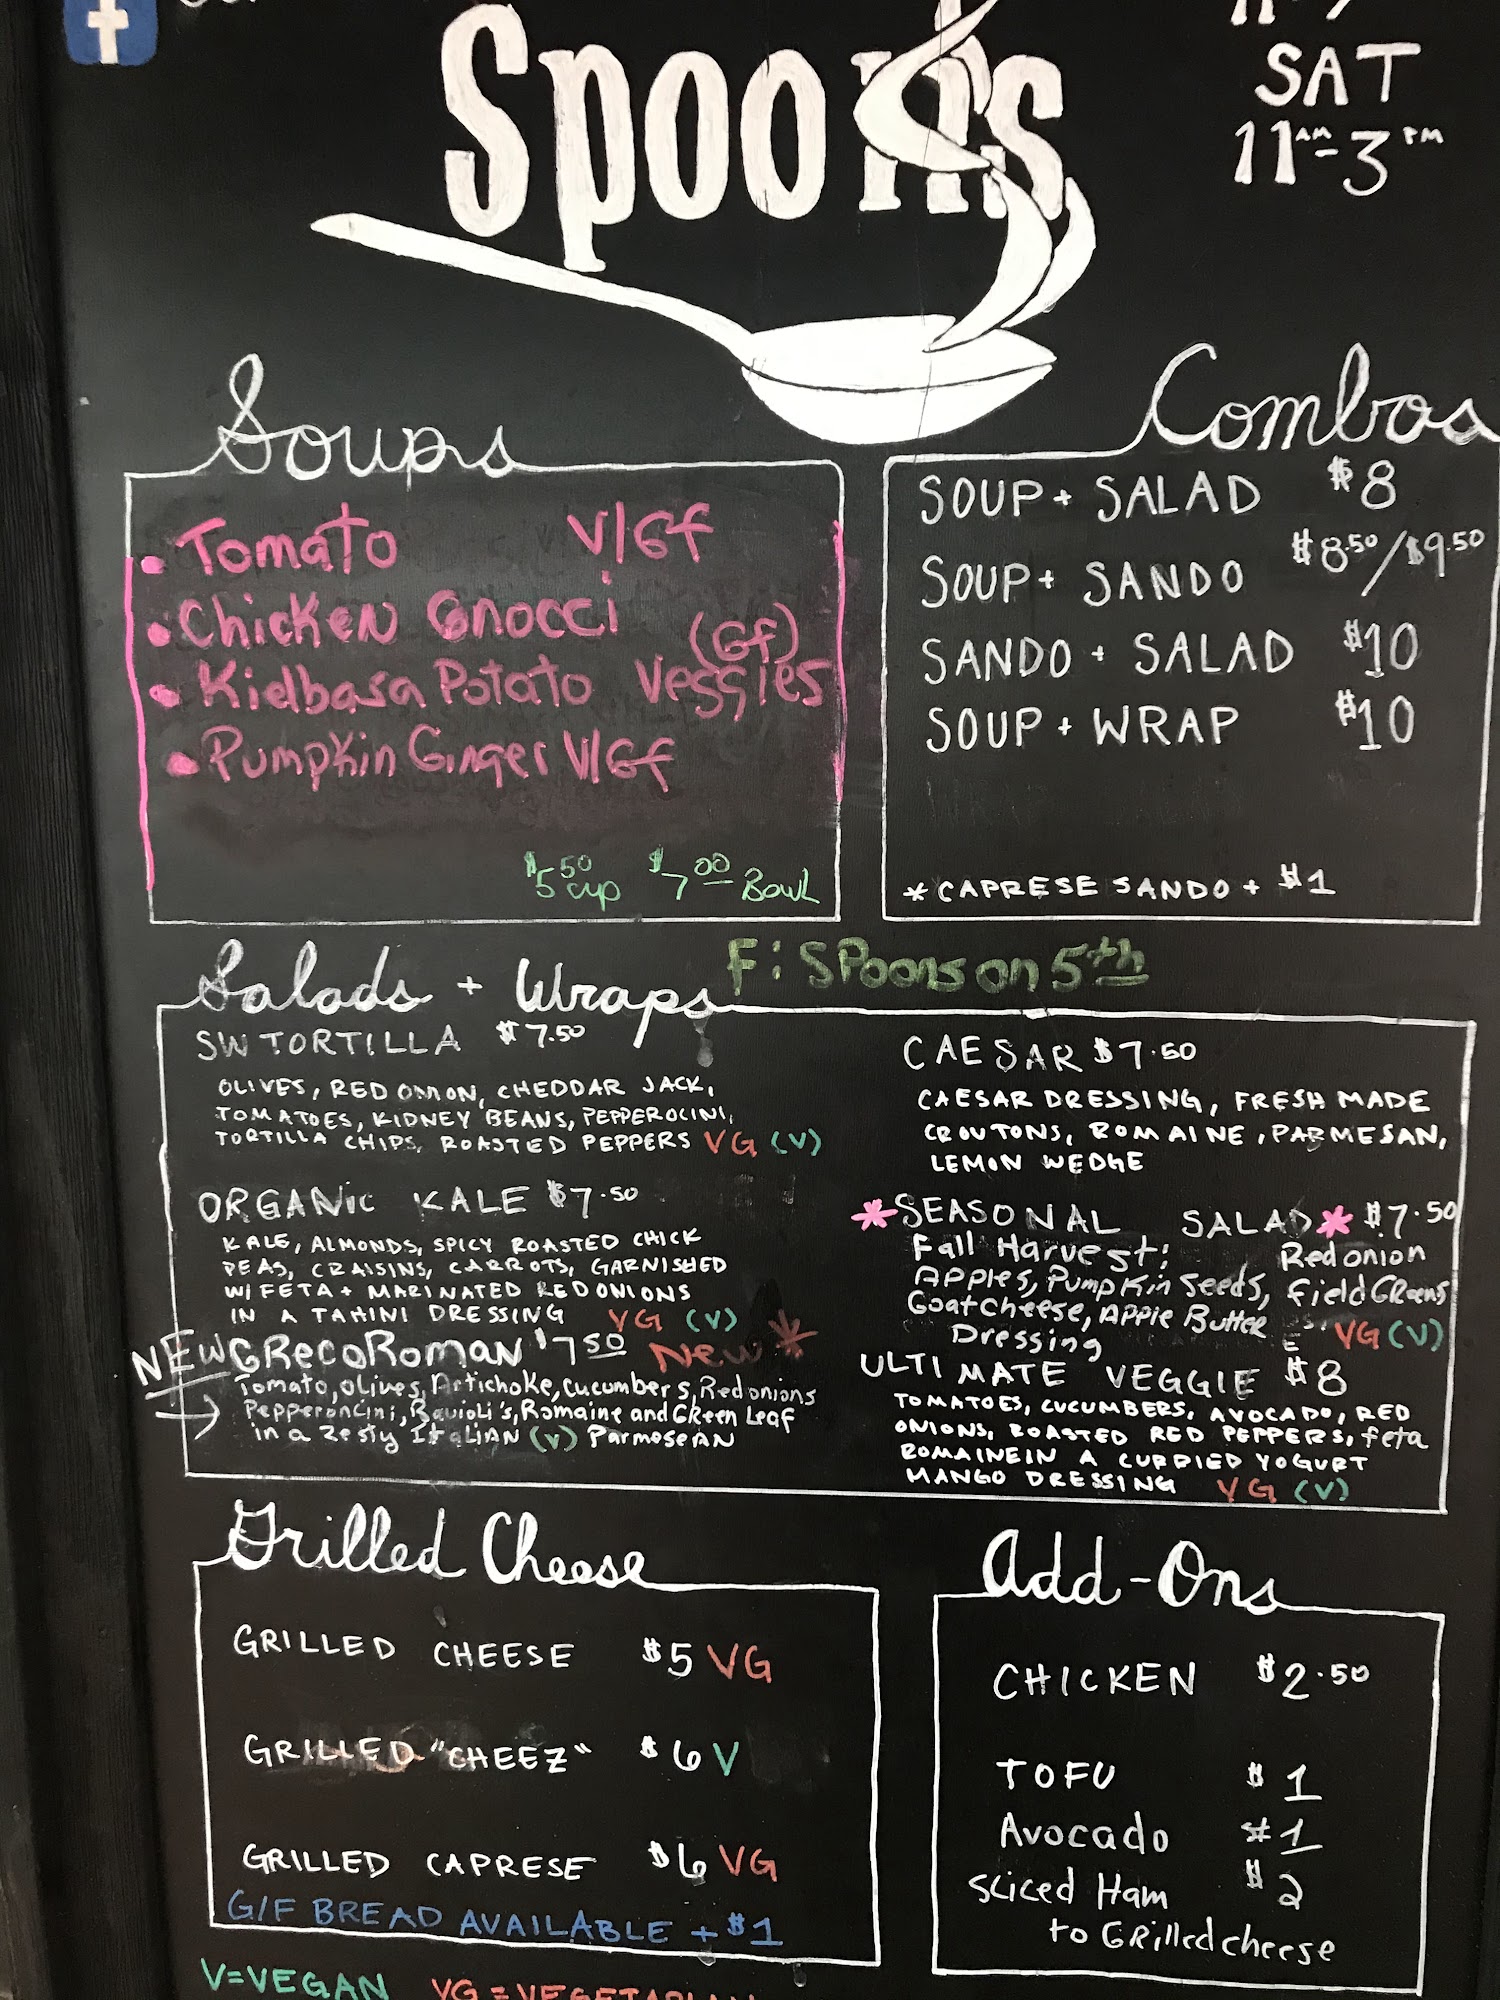 f
Spoons
SAT
11AM-3PM
Soups
• Tomato V/Gf
• Chicken Gnocci
(Gf)
• Kielbasa Potato Veggies
• Pumpkin Ginger V/Gf
$5.50 cup $7.00 Bowl
Combos
SOUP + SALAD $8
SOUP + SANDO $8.50/$9.50
SANDO + SALAD $10
SOUP + WRAP $10
*CAPRESE SANDO + $1
F: SPoons on 5th
Salads + Wraps
SW TORTILLA $7.50
OLIVES, RED ONION, CHEDDAR JACK,
TOMATOES, KIDNEY BEANS, PEPPEROCINI,
TORTILLA CHIPS, ROASTED PEPPERS VG (V)
ORGANIC KALE $7.50
KALE, ALMONDS, SPICY ROASTED CHICK
PEAS, CRAISINS, CARROTS, GARNISHED
W/ FETA + MARINATED RED ONIONS
IN A TAHINI DRESSING VG (V)
NEW GRecoRoman $7.50 New *
Tomato, olives, Artichoke, cucumbers, Red onions
Pepperoncini, Ravioli's, Romaine and Green Leaf
in a Zesty Italian (V) Parmesean
CAESAR $7.50
CAESAR DRESSING, FRESH MADE
CROUTONS, ROMAINE, PARMESAN,
LEMON WEDGE
*SEASONAL SALAD* $7.50
Fall Harvest: Red onion
Apples, Pumpkin seeds, Field Greens
Goat Cheese, Apple Butter
Dressing VG (V)
ULTIMATE VEGGIE $8
TOMATOES, CUCUMBERS, AVOCADO, RED
ONIONS, ROASTED RED PEPPERS, feta
ROMAINE IN A CURRIED YOGURT
MANGO DRESSING VG (V)
Grilled Cheese
GRILLED CHEESE $5 VG
GRILLED "CHEEZ" $6 V
GRILLED CAPRESE $6 VG
G/F BREAD AVAILABLE + $1
Add-Ons
CHICKEN $2.50
TOFU $1
Avocado $1
Sliced Ham $2
to Grilled cheese
V=VEGAN VG=VEGETARIAN